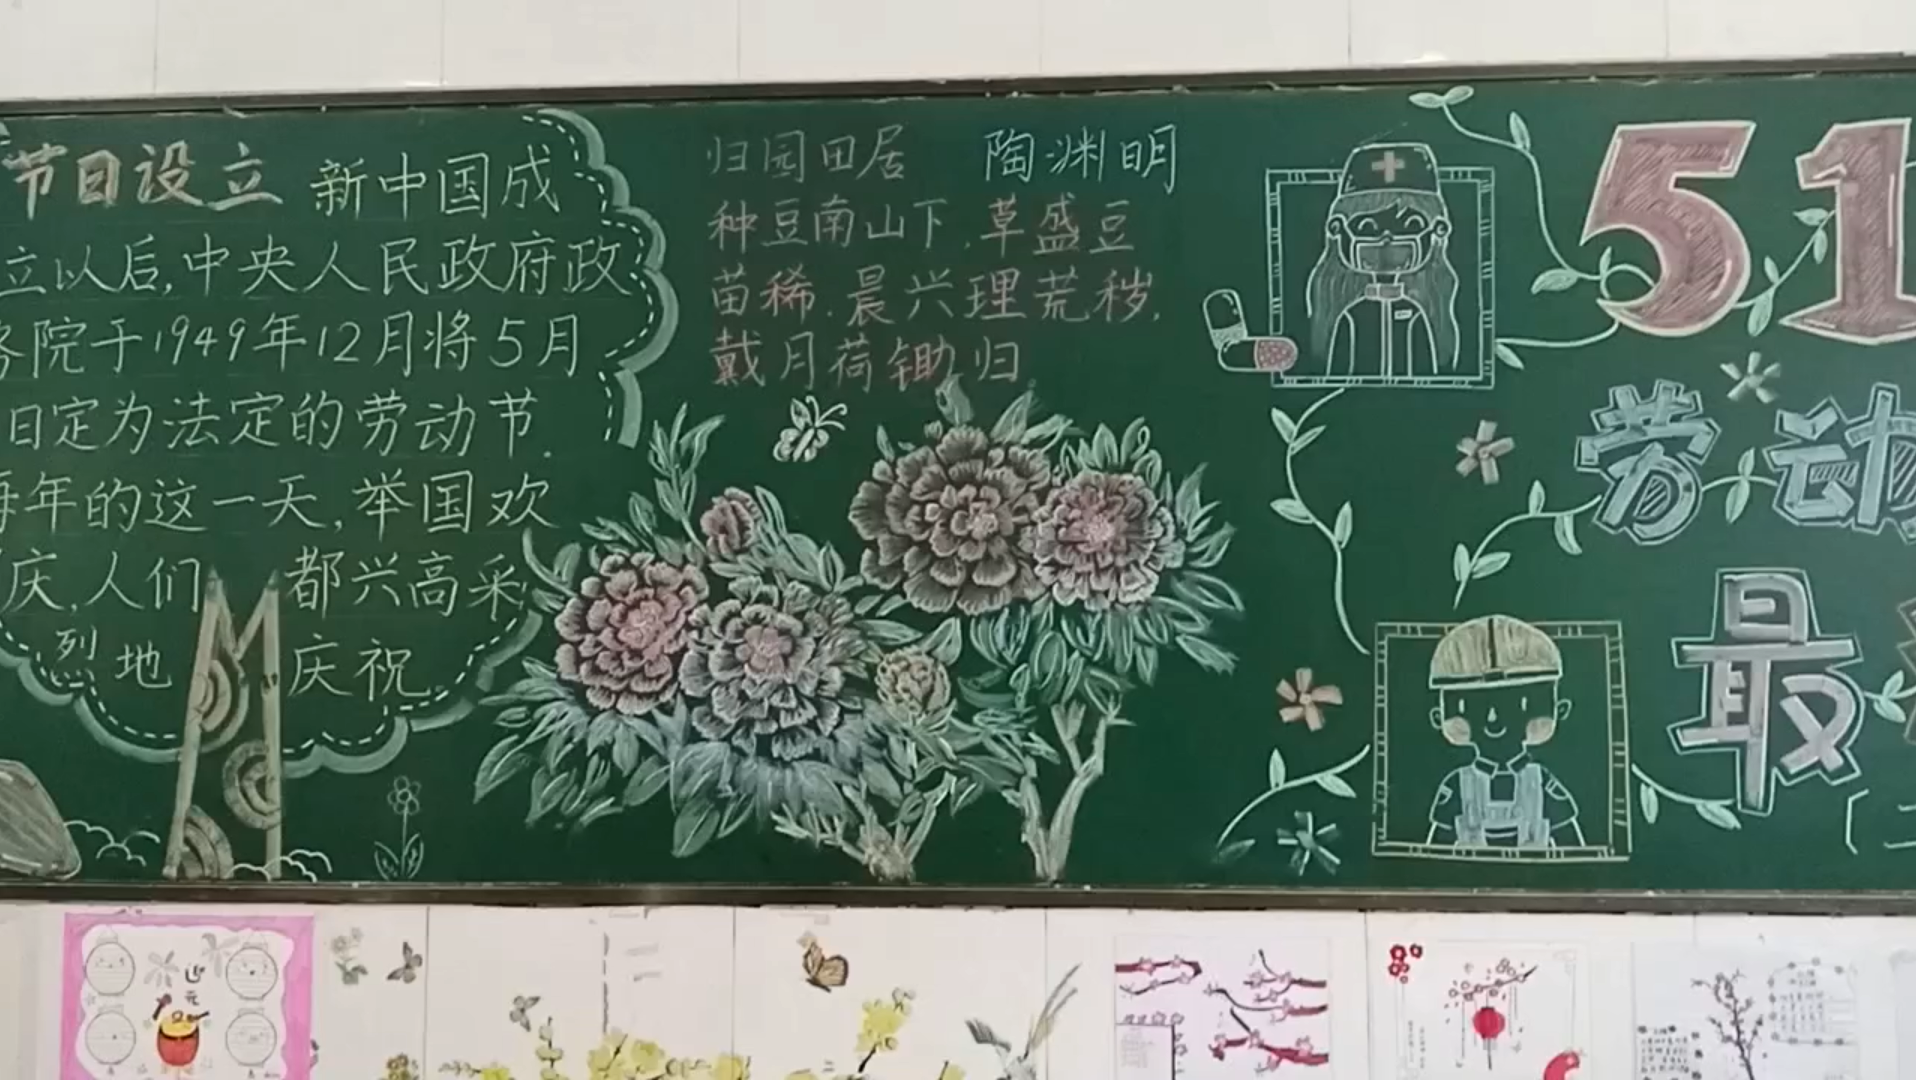 节日设立 新中国成
立以后,中央人民政府政
务院于1949年12月将5月
日定为法定的劳动节.
每年的这一天,举国欢
庆,人们都兴高采
烈地 庆祝
归园田居 陶渊明
种豆南山下,草盛豆
苗稀.晨兴理荒秽,
戴月荷锄归
51
劳动
最
迎
元